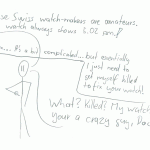 se Swiss watch-makers are amateurs.
watch always shows 5.02 am!
a... It's a bit complicated... but eventually
I just need to
get myself killed
to fix your watch!
What? Killed? My watch
your a crazy guy, Doc